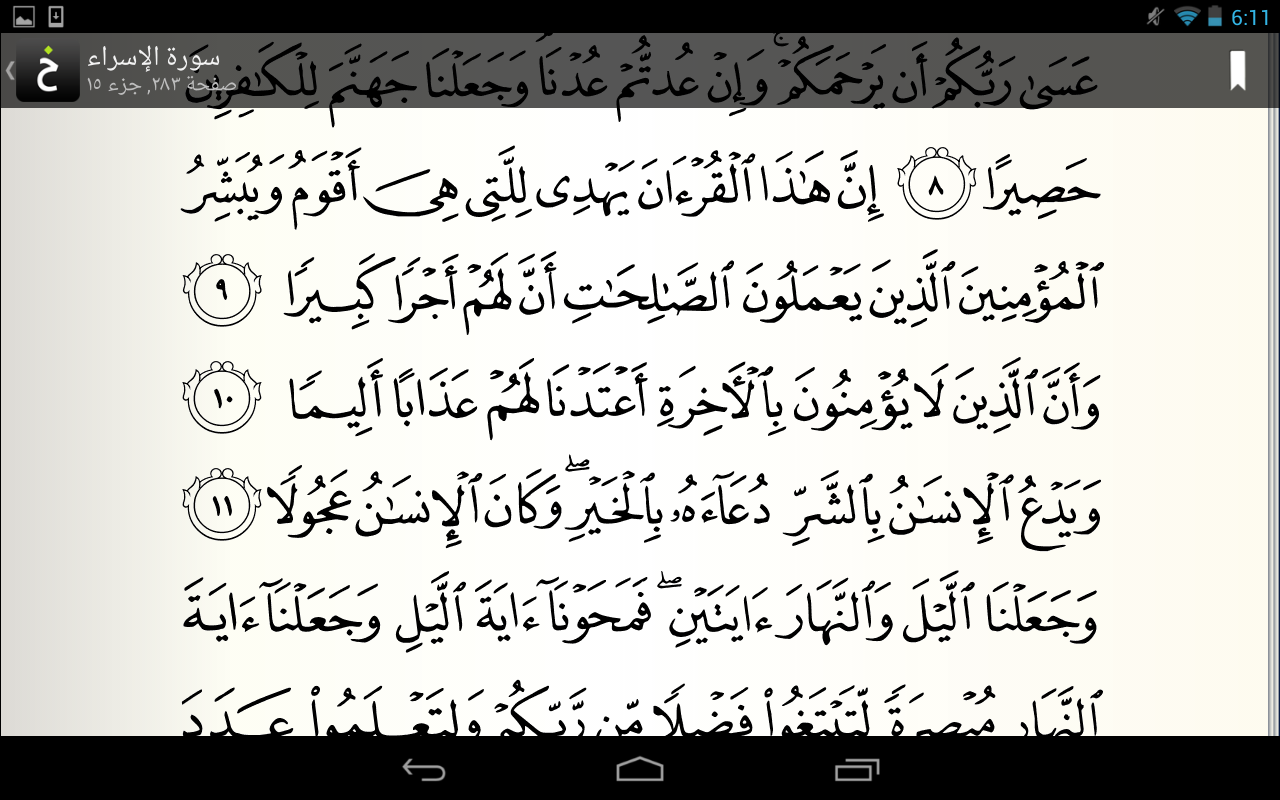 6:11
سورة الإسراء
صفحة ٢٨٣, جزء ١٥
عَسَىٰ رَبُّكُمْ أَن يَرْحَمَكُمْ ۚ وَإِنْ عُدتُّمْ عُدْنَا ۘ وَجَعَلْنَا جَهَنَّمَ لِلْكَـٰفِرِينَ
حَصِيرًا ٨ إِنَّ هَـٰذَا ٱلْقُرْءَانَ يَهْدِى لِلَّتِى هِىَ أَقْوَمُ وَيُبَشِّرُ
ٱلْمُؤْمِنِينَ ٱلَّذِينَ يَعْمَلُونَ ٱلصَّـٰلِحَـٰتِ أَنَّ لَهُمْ أَجْرًا كَبِيرًا ٩
وَأَنَّ ٱلَّذِينَ لَا يُؤْمِنُونَ بِٱلْـَٔاخِرَةِ أَعْتَدْنَا لَهُمْ عَذَابًا أَلِيمًا ١٠
وَيَدْعُ ٱلْإِنسَـٰنُ بِٱلشَّرِّ دُعَآءَهُۥ بِٱلْخَيْرِ ۖ وَكَانَ ٱلْإِنسَـٰنُ عَجُولًا ١١
وَجَعَلْنَا ٱلَّيْلَ وَٱلنَّهَارَ ءَايَتَيْنِ ۖ فَمَحَوْنَآ ءَايَةَ ٱلَّيْلِ وَجَعَلْنَآ ءَايَةَ
ٱلنَّهَارِ مُبْصِرَةً لِّتَبْتَغُوا۟ فَضْلًا مِّن رَّبِّكُمْ وَلِتَعْلَمُوا۟ عَدَدَ